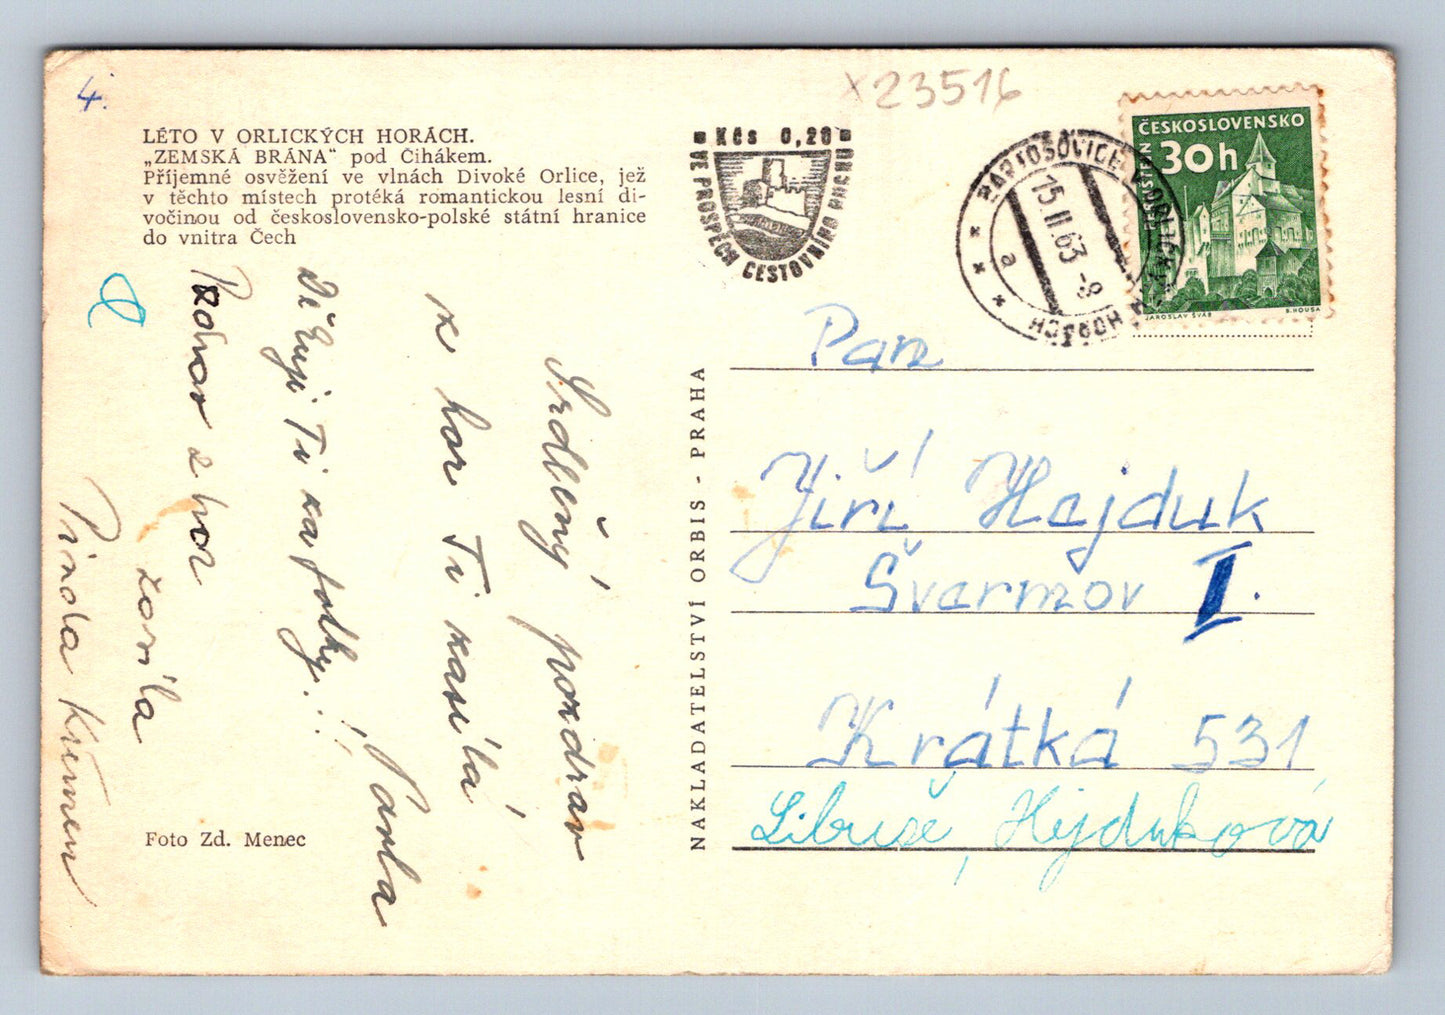 4.
x23516
LÉTO V ORLICKÝCH HORÁCH.
„ZEMSKÁ BRÁNA" pod Čihákem.
Příjemné osvěžení ve vlnách Divoké Orlice, jež
v těchto místech protéká romantickou lesní di-
vočinou od československo-polské státní hranice
do vnitra Čech
Kčs 0,20
VE PROSPĚCH CESTOVNÍHO RUCHU
BARTOŠOVICE V ORLICKÝCH HORÁCH
15.II.63 -8
a
ČESKOSLOVENSKO
30h
JAROSLAV ŠVÁB
B. HOUSA
Srdečný pozdrav
z hor Ti zasílá
Děkuji Ti za fotky..! Pavla
z hor
zasila
NAKLADATELSTVÍ ORBIS - PRAHA
Pan
Jiří Hajduk
Švarmov I.
Krátká 531
Libuše, Hejduková
Foto Zd. Menec